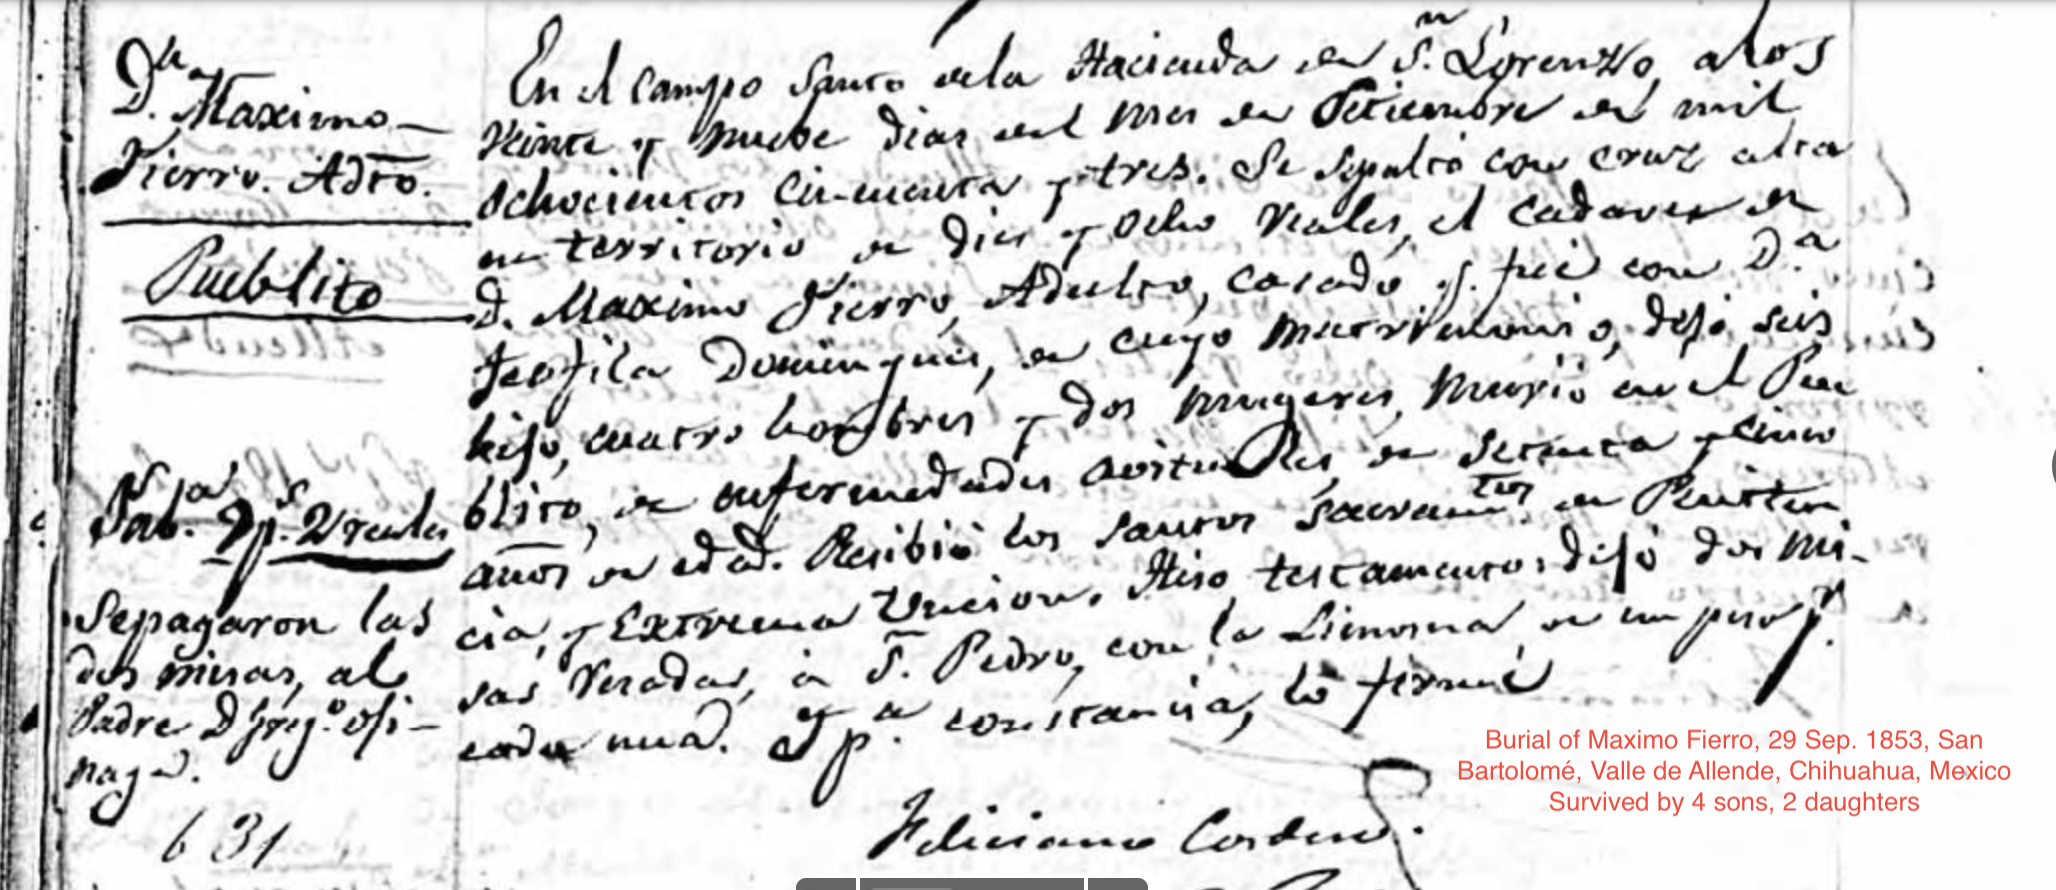 D.n Maximo
Fierro. Adto.
Pueblito
Fab.a 7p.s 2 reales
Se pagaron las
dos misas, al
Padre D Greg.o
631
En el campo Santo de la Hacienda de S.n Lorenzo, a los
veinte y nuebe dias del mes de Setiembre de mil
ochocientos cincuenta y tres. Se sepultó con cruz alta
en territorio de dies y ocho reales, el cadaver de
D. Maximo Fierro, Adulto, casado q. fué con D.a
Teofila Dominguez, de cuyo matrimonio, dejó seis
hijos, cuatro hombres y dos mugeres, Murió en el Pue
blito, de enfermedades de setenta y cinco
años de edad. Resibió los santos sacramtos de Peniten
cia, y Extrema Uncion. Hiso testamento: dejó dos mi-
sas resadas, á S. Pedro, con la Limosna de un peso p.r
cada una. Y p.a constancia, lo firmé
Feliciano Cordero.
Burial of Maximo Fierro, 29 Sep. 1853, San
Bartolomé, Valle de Allende, Chihuahua, Mexico
Survived by 4 sons, 2 daughters